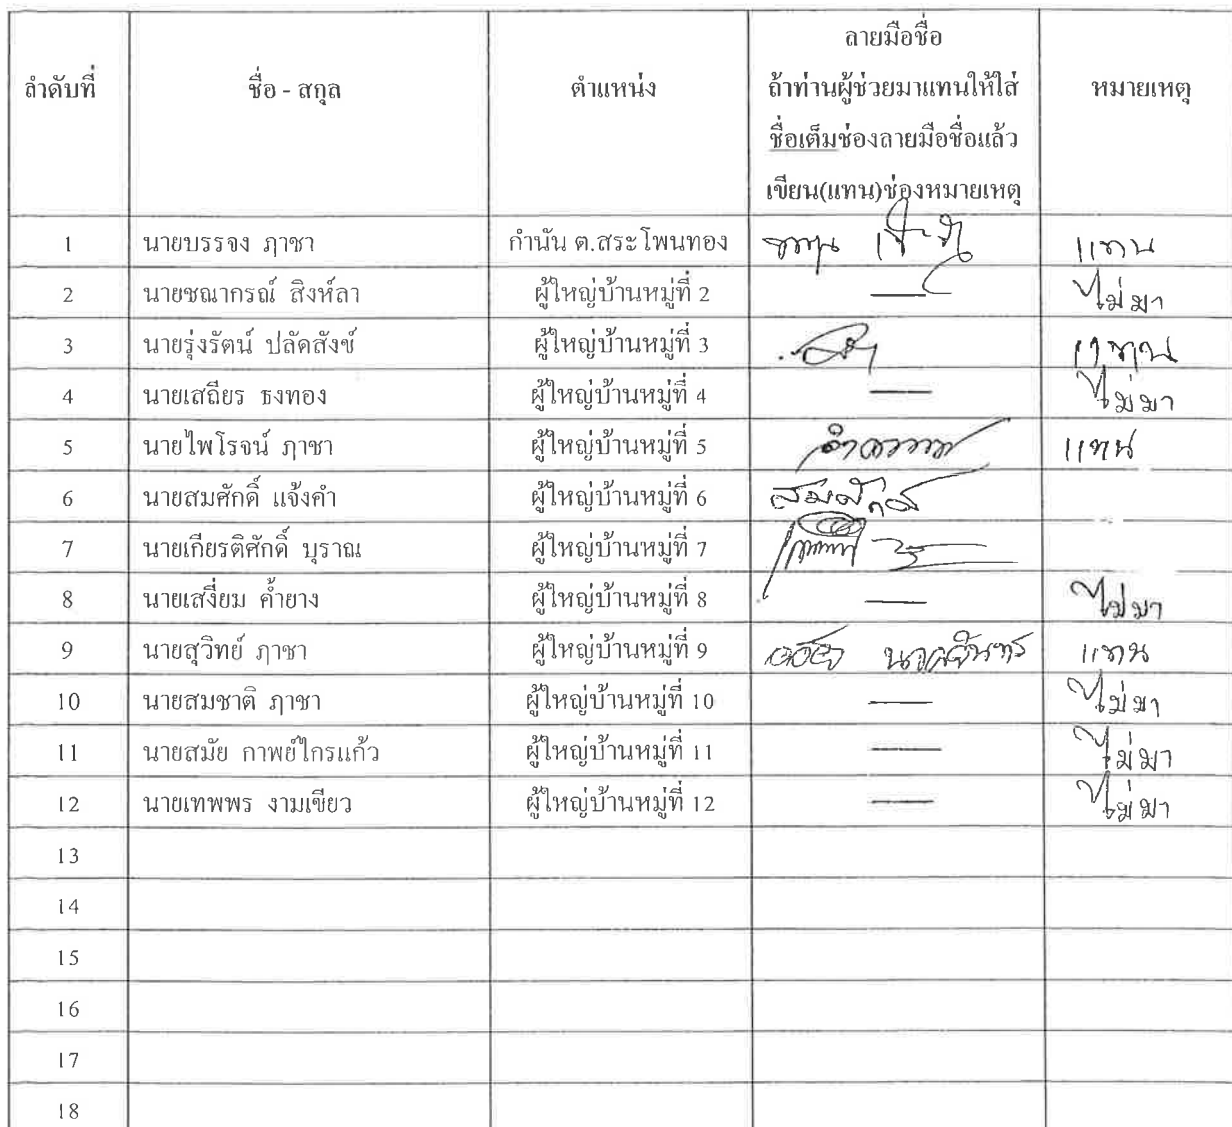 ลำดับที่ ชื่อ - สกุล ตำแหน่ง ลายมือชื่อ ถ้าท่านผู้ช่วยมาแทนให้ใส่ ชื่อเต็มช่องลายมือชื่อแล้ว เขียน(แทน)ช่องหมายเหตุ หมายเหตุ
1 นายบรรจง ภาชา กำนัน ต.สระโพนทอง แทน
2 นายชณากรณ์ สิงห์ลา ผู้ใหญ่บ้านหมู่ที่ 2 — ไม่มา
3 นายรุ่งรัตน์ ปลัดสังข์ ผู้ใหญ่บ้านหมู่ที่ 3 แทน
4 นายเสถียร ธงทอง ผู้ใหญ่บ้านหมู่ที่ 4 — ไม่มา
5 นายไพโรจน์ ภาชา ผู้ใหญ่บ้านหมู่ที่ 5 แทน
6 นายสมศักดิ์ แจ้งคำ ผู้ใหญ่บ้านหมู่ที่ 6 สมศักดิ์
7 นายเกียรติศักดิ์ บุราณ ผู้ใหญ่บ้านหมู่ที่ 7
8 นายเสงี่ยม ค้ำยาง ผู้ใหญ่บ้านหมู่ที่ 8 — ไม่มา
9 นายสุวิทย์ ภาชา ผู้ใหญ่บ้านหมู่ที่ 9 แทน
10 นายสมชาติ ภาชา ผู้ใหญ่บ้านหมู่ที่ 10 — ไม่มา
11 นายสมัย กาพย์ไกรแก้ว ผู้ใหญ่บ้านหมู่ที่ 11 — ไม่มา
12 นายเทพพร งามเขียว ผู้ใหญ่บ้านหมู่ที่ 12 — ไม่มา
13
14
15
16
17
18